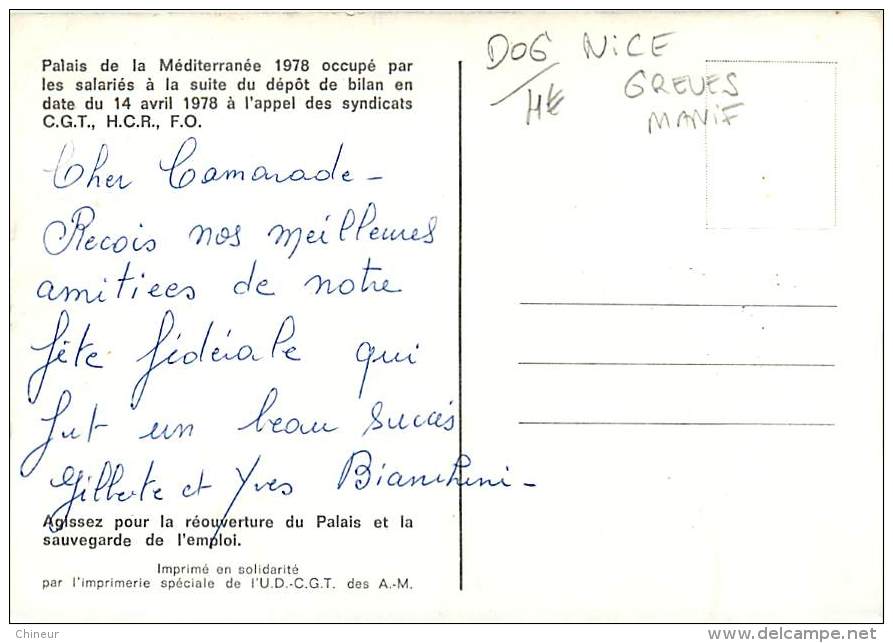 Palais de la Méditerranée 1978 occupé par
les salariés à la suite du dépôt de bilan en
date du 14 avril 1978 à l'appel des syndicats
C.G.T., H.C.R., F.O.
Cher Camarade -
Recois nos meilleures
amitiees de notre
fête fédérale qui
fut un beau succès
Gilberte et Yves Bianchini -
Agissez pour la réouverture du Palais et la
sauvegarde de l'emploi.
Imprimé en solidarité
par l'imprimerie spéciale de l'U.D.-C.G.T. des A.-M.
NICE
GREVES
MANIF
Chineur
delcampe.net